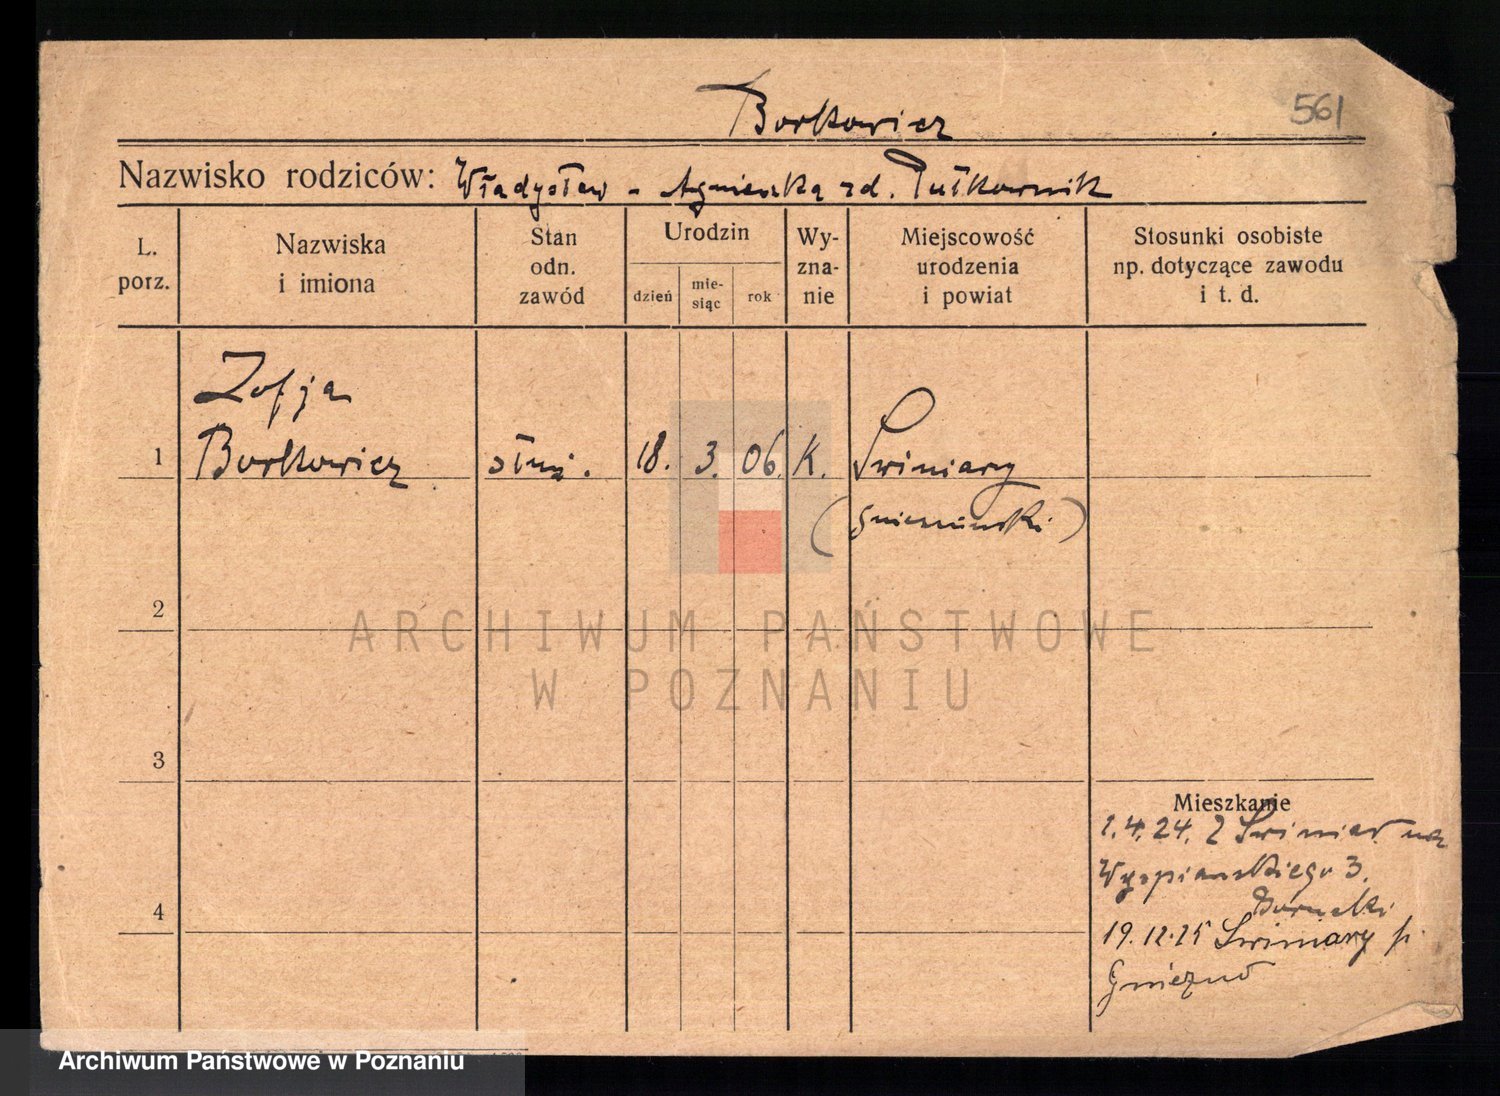 561
Borkowicz
Nazwisko rodziców: Władysław - Agnieszka zd. Pułkownik
L. porz.
Nazwiska i imiona
Stan odn. zawód
Urodzin
dzień
mie-siąc
rok
Wy-zna-nie
Miejscowość urodzenia i powiat
Stosunki osobiste np. dotyczące zawodu i t. d.
Zofja
1 Borkowicz służ. 18. 3. 06. K. Swiniary
(gnieznieński)
2
3
4
Mieszkanie
1.4.24. Z Swiniar na
Wyspiańskiego 3.
19.12.25 Swiniary p.
Gniezno
ARCHIWUM PAŃSTWOWE
W POZNANIU
Archiwum Państwowe w Poznaniu